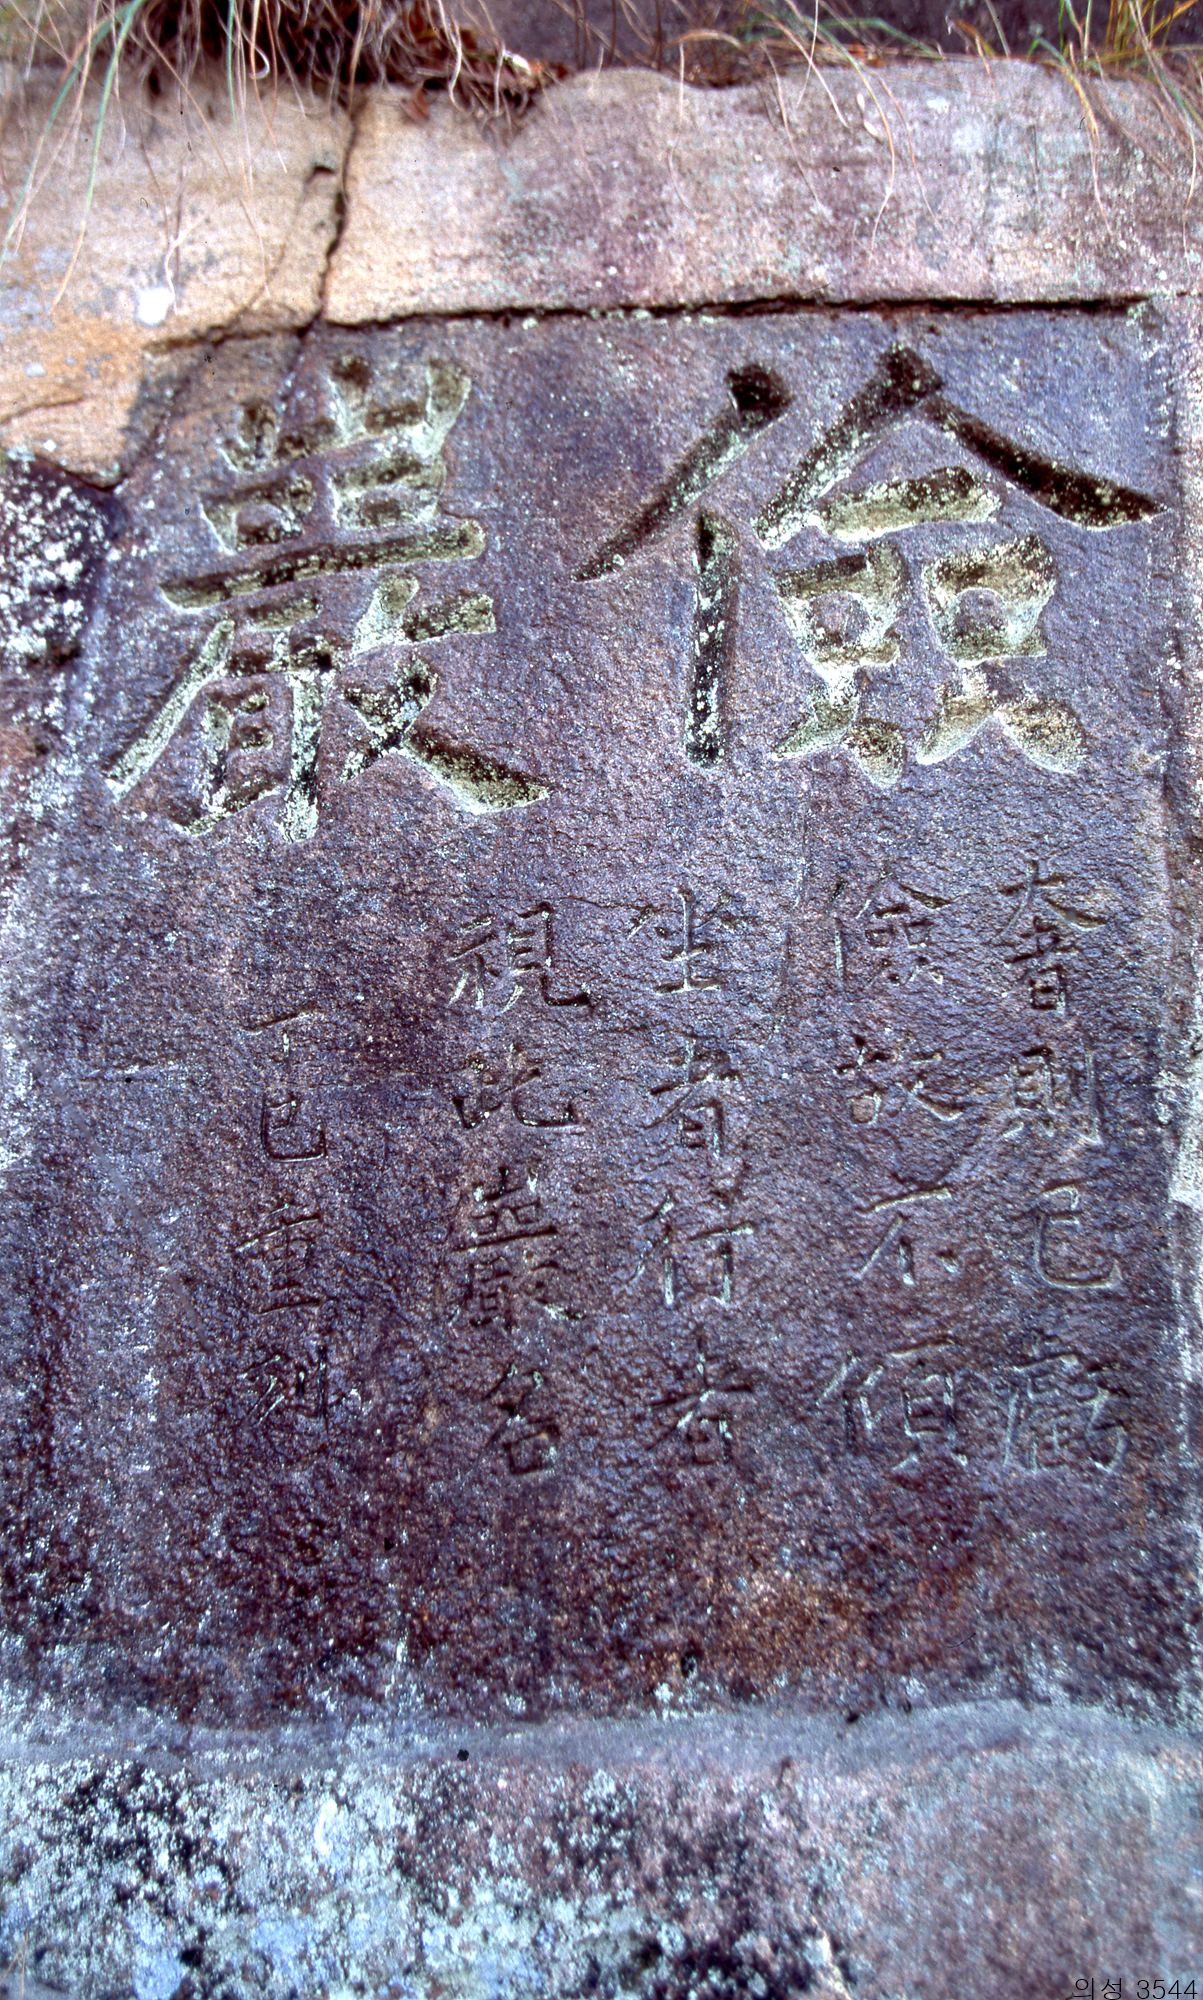 儉巖
奢則已虧
儉故不傾
坐者行者
視此巖名
丁巳重刻
의성 3544